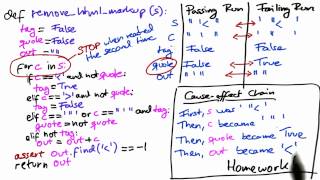 def remove_html_markup(s):
tag = False
quote = False
out = ""
for c in s:
STOP when reached the second time
if c == '<' and not quote:
tag = True
elif c == '>' and not quote:
tag = False
elif c == '"' and tag:
quote = not quote
elif not tag:
out = out + c
assert out.find('<') == -1
return out
Passing Run
Failing Run
S
C
tag
quote
out
False
False
False
True
Cause-effect Chain
First, s was '"<"'
Then, c became '"'
Then, quote became True
Then, out became '<'
Homework